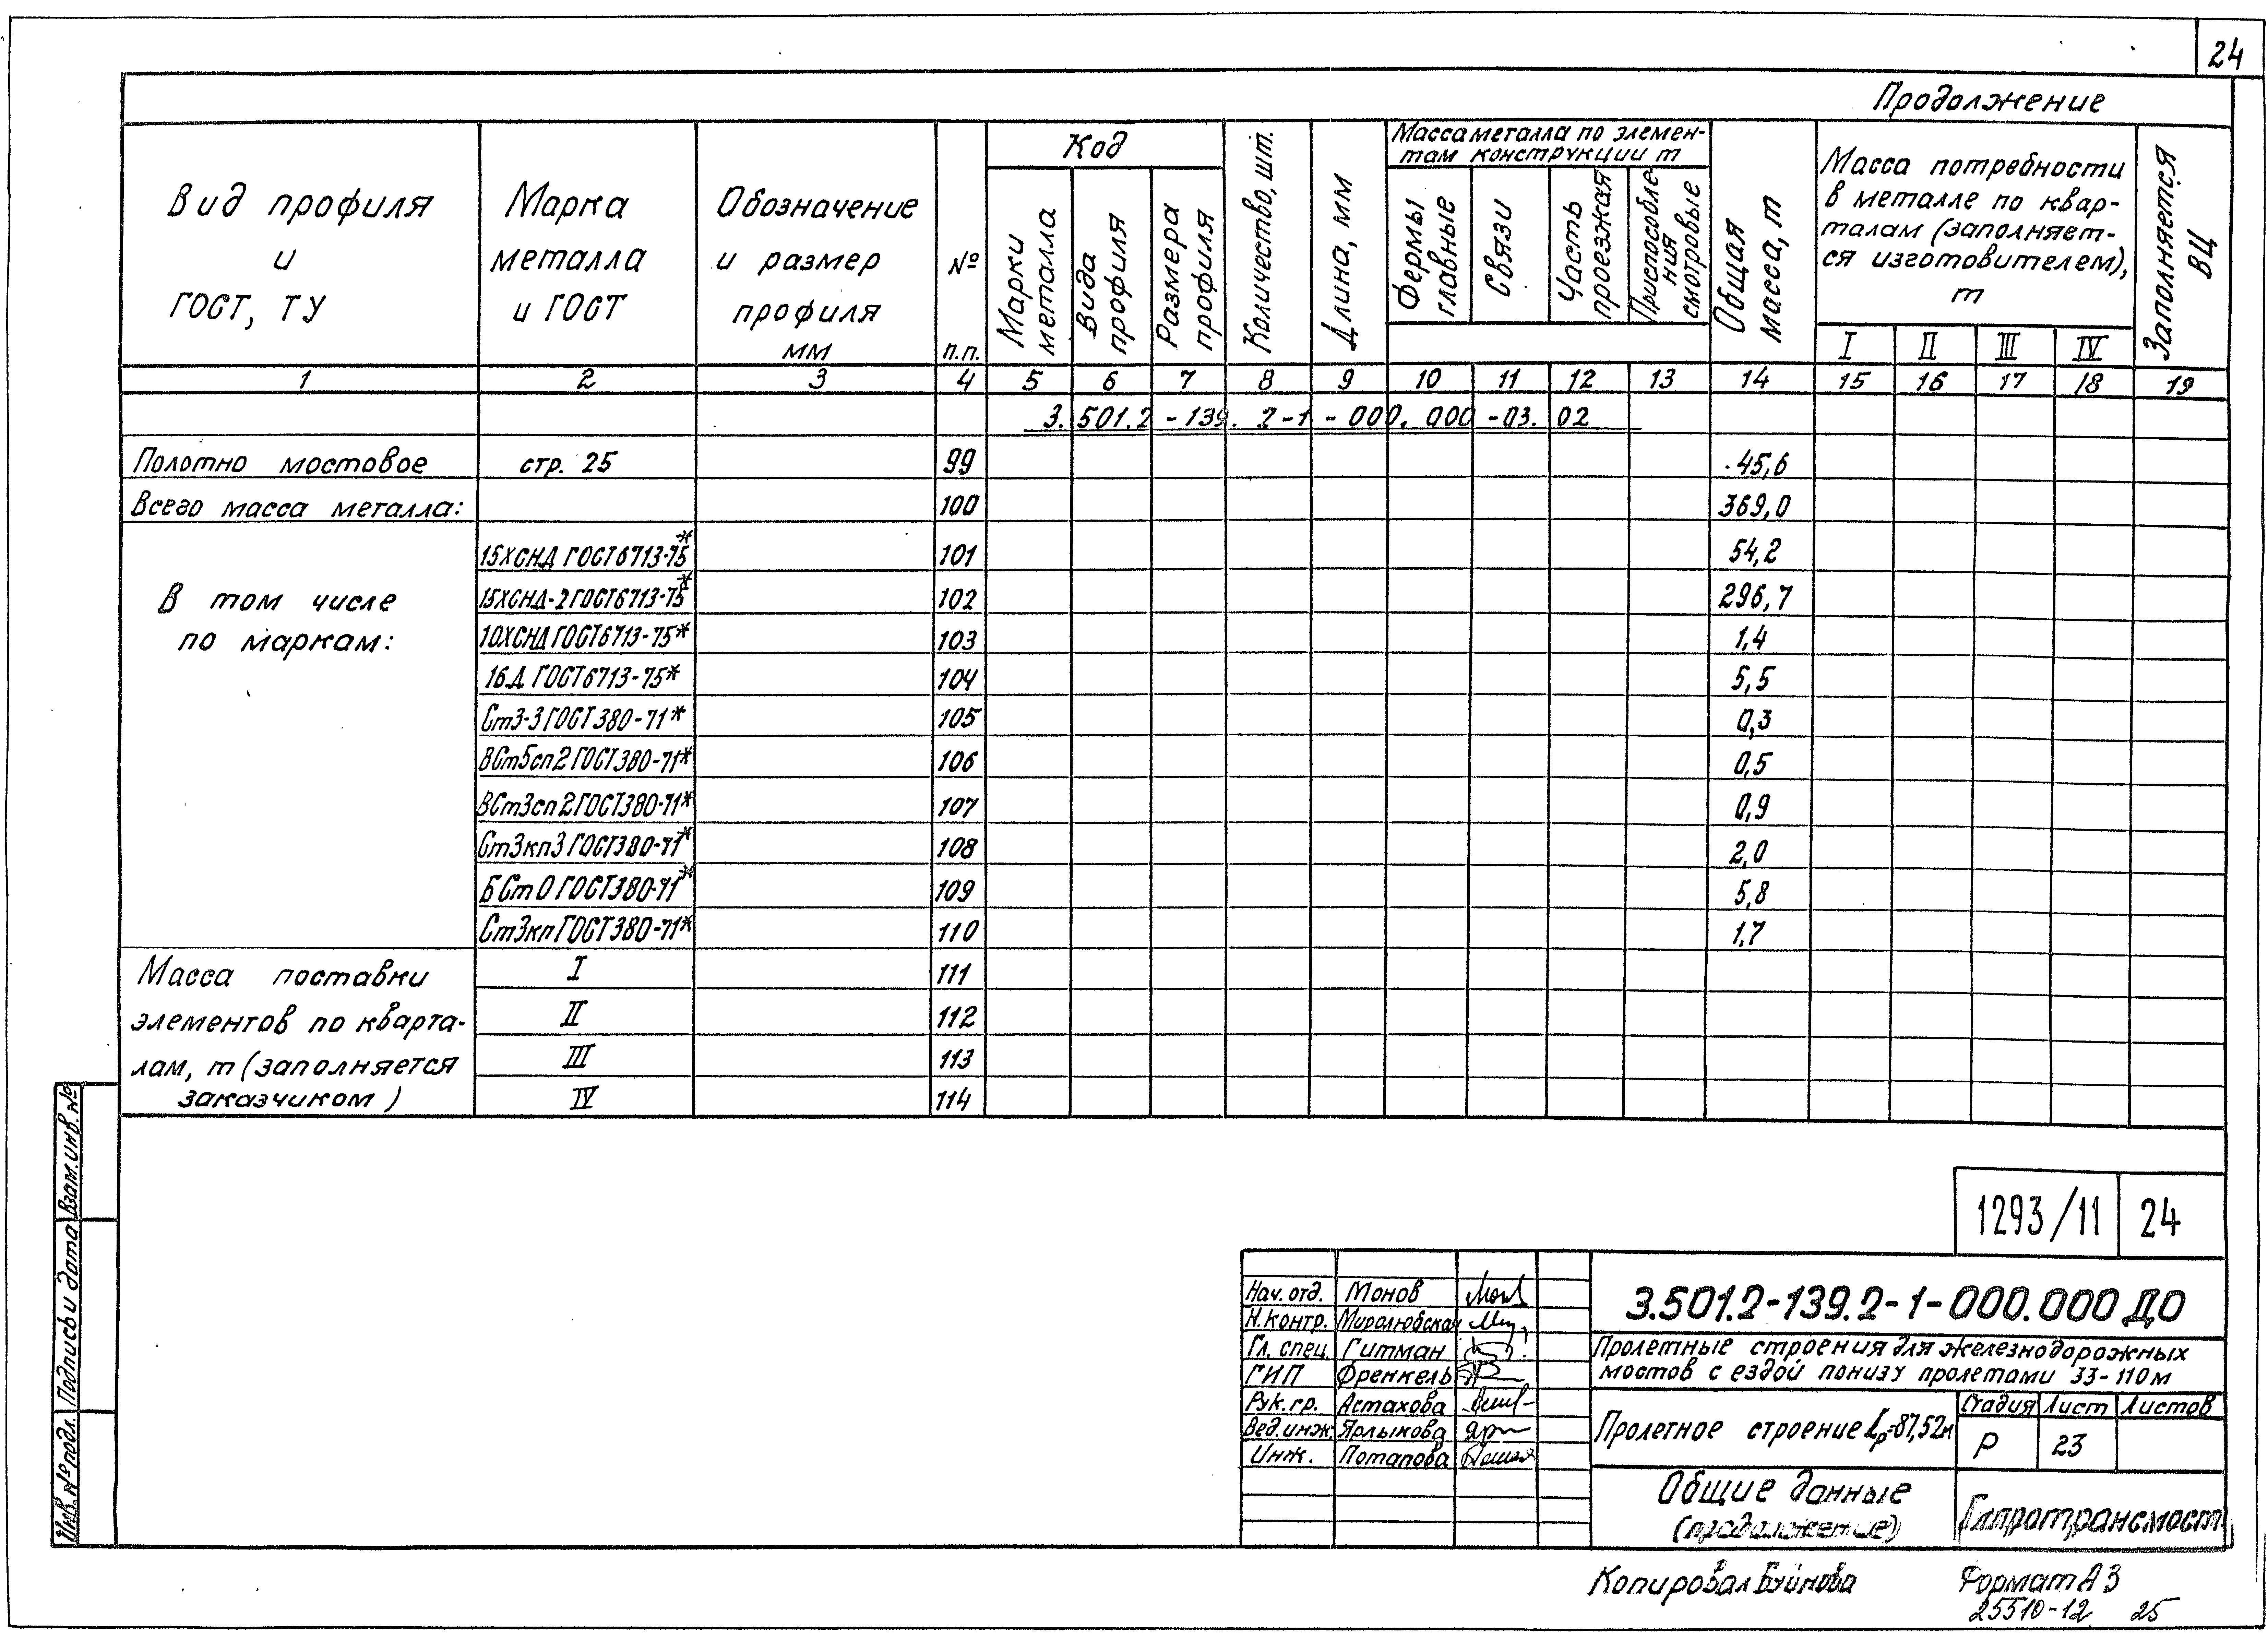 24
Продолжение
Вид профиля и ГОСТ, ТУ
Марка металла и ГОСТ
Обозначение и размер профиля мм
№ п.п.
Код
Марки металла
Вида профиля
Размера профиля
Количество, шт.
Длина, мм
Масса металла по элемен-
там конструкции т
Фермы главные
Связи
Часть проезжая
Приспособле
ния
смотровые
Общая масса, т
Масса потребности
в металле по квар-
талам (заполняет-
ся изготовителем),
т
I II III IV
Заполняется ВЦ
1 2 3 4 5 6 7 8 9 10 11 12 13 14 15 16 17 18 19
3.501.2-139.2-1-000.000-03.02
Полотно мостовое стр. 25 99 45,6
Всего масса металла: 100 369,0
15ХСНД ГОСТ 6713-75* 101 54,2
В том числе 15ХСНД-2 ГОСТ 6713-75* 102 296,7
по маркам: 10ХСНД ГОСТ 6713-75* 103 1,4
16Д ГОСТ 6713-75* 104 5,5
Ст3-3 ГОСТ 380-71* 105 0,3
ВСт5сп2 ГОСТ 380-71* 106 0,5
ВСт3сп2 ГОСТ 380-71* 107 0,9
Ст3кп3 ГОСТ 380-71* 108 2,0
БСт0 ГОСТ 380-71* 109 5,8
Ст3кп ГОСТ 380-71* 110 1,7
Масса поставки I 111
элементов по кварта- II 112
лам, т (заполняется III 113
заказчиком) IV 114
Взам. инв. №
Подпись и дата
Инв. № подл.
1293/11 24
Нач. отд. Монов
Н. контр. Миролюбская
Гл. спец. Гитман
ГИП Френкель
Рук. гр. Астахова
Вед. инж. Ярлыкова
Инж. Потапова
3.501.2-139.2-1-000.000 ДО
Пролетные строения для железнодорожных
мостов с ездой понизу пролетами 33-110м
Пролетное строение Lр=87,52м
Стадия Лист Листов
Р 23
Общие данные
(продолжение)
Гипротрансмост
Копировал Буйнова Формат А3
25510-12 25